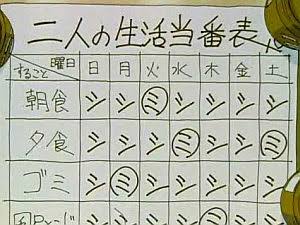 二人の生活当番表
すること 曜日 日 月 火 水 木 金 土
朝食 シ シ ミ シ シ シ シ
夕食 シ シ シ ミ シ シ ミ
ゴミ シ ミ シ シ シ シ シ
シ シ シ シ ミ シ シ